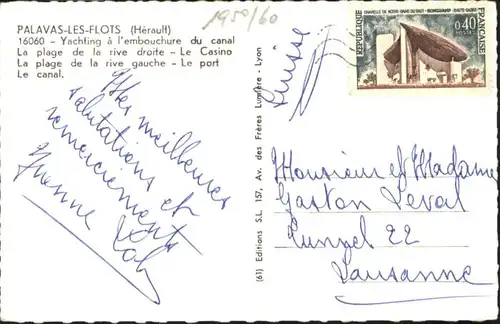 PALAVAS-LES-FLOTS (Hérault)
16060 - Yachting à l'embouchure du canal
La plage de la rive droite - Le Casino
La plage de la rive gauche - Le port
Le canal.
1950/60
Mes meilleures
salutations et
remerciements
Yvonne
(61) Editions S.L. 157, Av. des Frères Lumière - Lyon
Suisse
REPUBLIQUE FRANÇAISE
CHAPELLE DE NOTRE-DAME-DU-HAUT - RONCHAMP - HAUTE-SAÔNE
0,40
POSTES
Monsieur et Madame
Gaston Deval
22
Lausanne